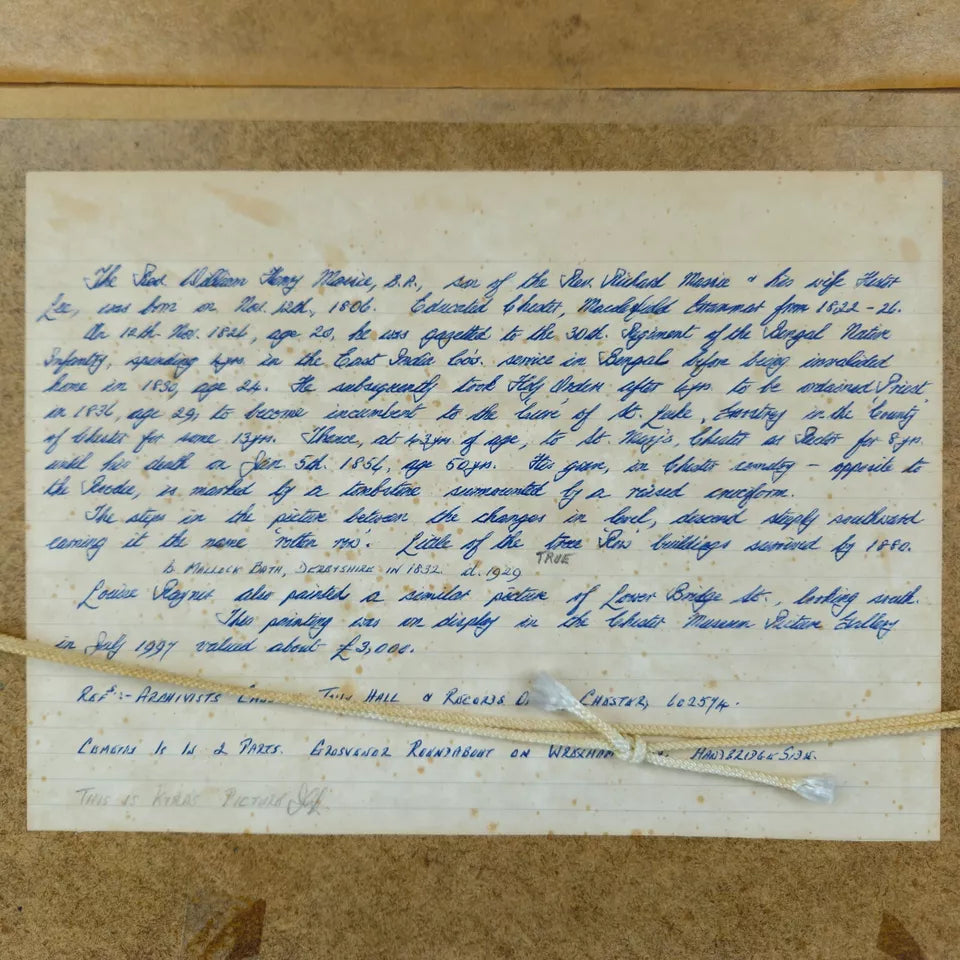 The Rev. William Henry Massie, B.A., son of the Rev. Richard Massie & his wife Hester
Lee, was born on Nov. 12th, 1806. Educated Chester, Macclesfield Grammar from 1822-26.
On 12th Nov. 1826, age 20, he was gazetted to the 30th Regiment of the Bengal Native
Infantry, spending 4yrs. in the East India Co's. service in Bengal before being invalided
home in 1830, age 24. He subsequently took Holy Orders after 6yrs. to be ordained Priest
in 1836, age 29, to become incumbent to the Cure of St. Luke, in the County
of Chester for some 13yrs. Thence, at 43yrs. of age, to St. Mary's, Chester as Rector for 8yrs.
until his death on Jan 5th. 1856, age 50yrs. His grave, in Chester cemetry – opposite to
the Roodee, is marked by a tombstone surmounted by a raised cruciform.
The steps in the picture between the changes in level, descend steeply southward
earning it the name 'rotten row'. Little of the true Row buildings survived by 1880.
TRUE
b. MALLOCK BATH, DERBYSHIRE IN 1832. d. 1929
Louise Rayner also painted a similar picture of Lower Bridge St., looking south.
This painting was on display in the Chester Museum Picture Gallery
in July 1997 valued about £3,000.
REFS:- ARCHIVISTS HALL & RECORDS CHESTER, 602574.
IS IN 2 PARTS. GROSVENOR ROUNDABOUT ON HANDBRIDGE SIDE.
THIS IS KYRAS PICTURE